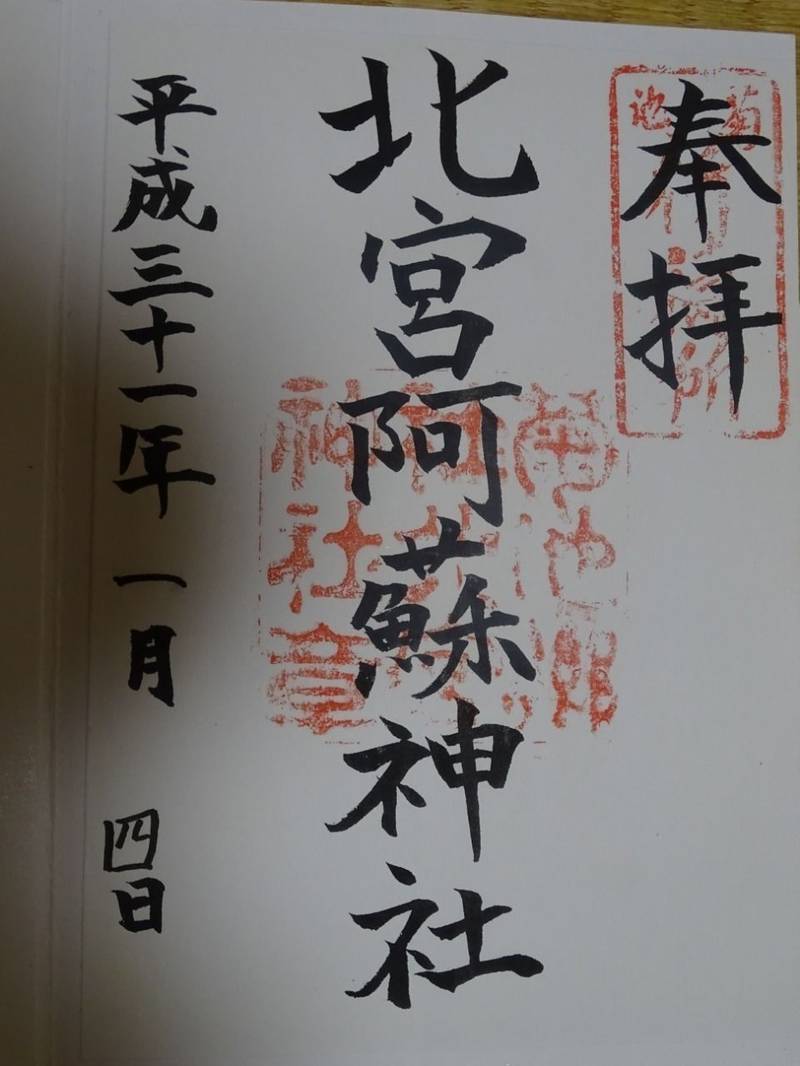 奉拝
北宮阿蘇神社
平成三十一年 一月 四日
神社章